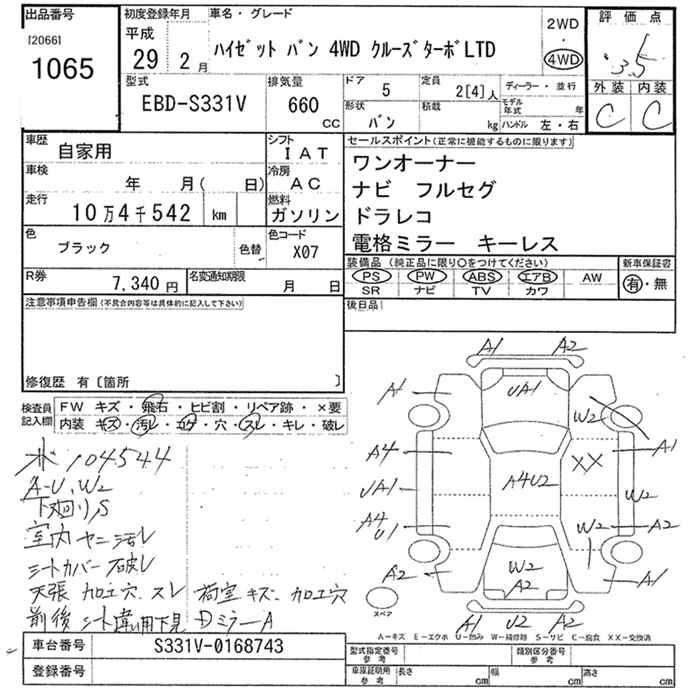 出品番号
[2066]
1065
初度登録年月
平成
29年 2月
車名・グレード
ハイゼット バン 4WD クルーズターボLTD
2WD
・
4WD
評価点
3.5
外装 内装
C C
型式
EBD-S331V
排気量
660
CC
ドア
5
定員
2[4]人
ディーラー・並行
形状
バン
積載
kg
モデル年式 年
ハンドル 左・右
車歴
自家用
シフト
IAT
車検
年 月( 日)
冷房
AC
走行
10万4千542 km
燃料
ガソリン
色
ブラック
色替
色コード
X07
R券
7,340円
名変通知期限
月 日
セールスポイント(正常に機能するものに限ります)
ワンオーナー
ナビ フルセグ
ドラレコ
電格ミラー キーレス
装備品(純正品に限り○をつけてください)
PS PW ABS エアB AW
SR ナビ TV カワ
新車保証書
有・無
後日品
注意事項申告欄(不具合内容等は具体的に記入して下さい)
修復歴 有〔箇所 〕
検査員記入欄
FW キズ・飛石・ヒビ割・リペア跡・×要
内装 キズ・汚レ・コゲ・穴・スレ・キレ・破レ
104544
A-U、W2
下廻りS
室内 ヤニ 汚レ
シートカバー 破レ
天張 加工穴、スレ 荷室 キズ、加工穴
前後 シート違い用下見 DミラーA
A1 A2
A1 UA1 W2
A4 XX A1
UA1 A4U2 W2
A4 U1 W2 A2
A2 W2 A2 A1
スペア
A1 U2 A2
A-キズ E-エクボ U-凹み W-補修跡 S-サビ C-腐食 XX-交換済
車台番号
S331V-0168743
登録番号
型式指定番号
参考
類別区分番号
参考
車庫証明用
参考
長さ cm 幅 cm 高さ cm